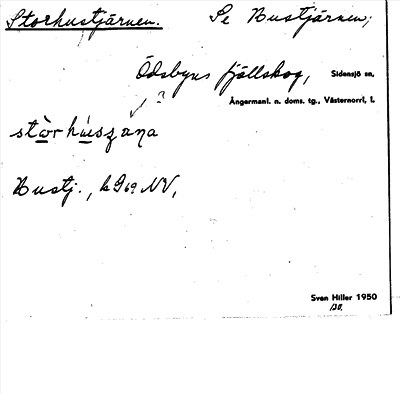 Storhustjärnen. Se Hustjärnen;
Ödsbyns fjällskog, Sidensjö sn,
?
Ångermanl. n. doms. tg., Västernorrl. l.
stòrhúszɑna
Hustj., k 9 69 NV,
Sven Hiller 1950